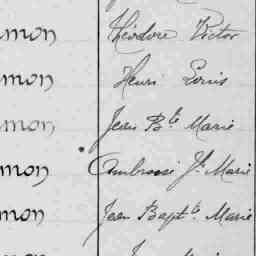 mon Théodore Victor
mon Henri Louis
mon Jean Bte Marie
mon Ambroise Jh Marie
mon Jean Bapte Marie
mon